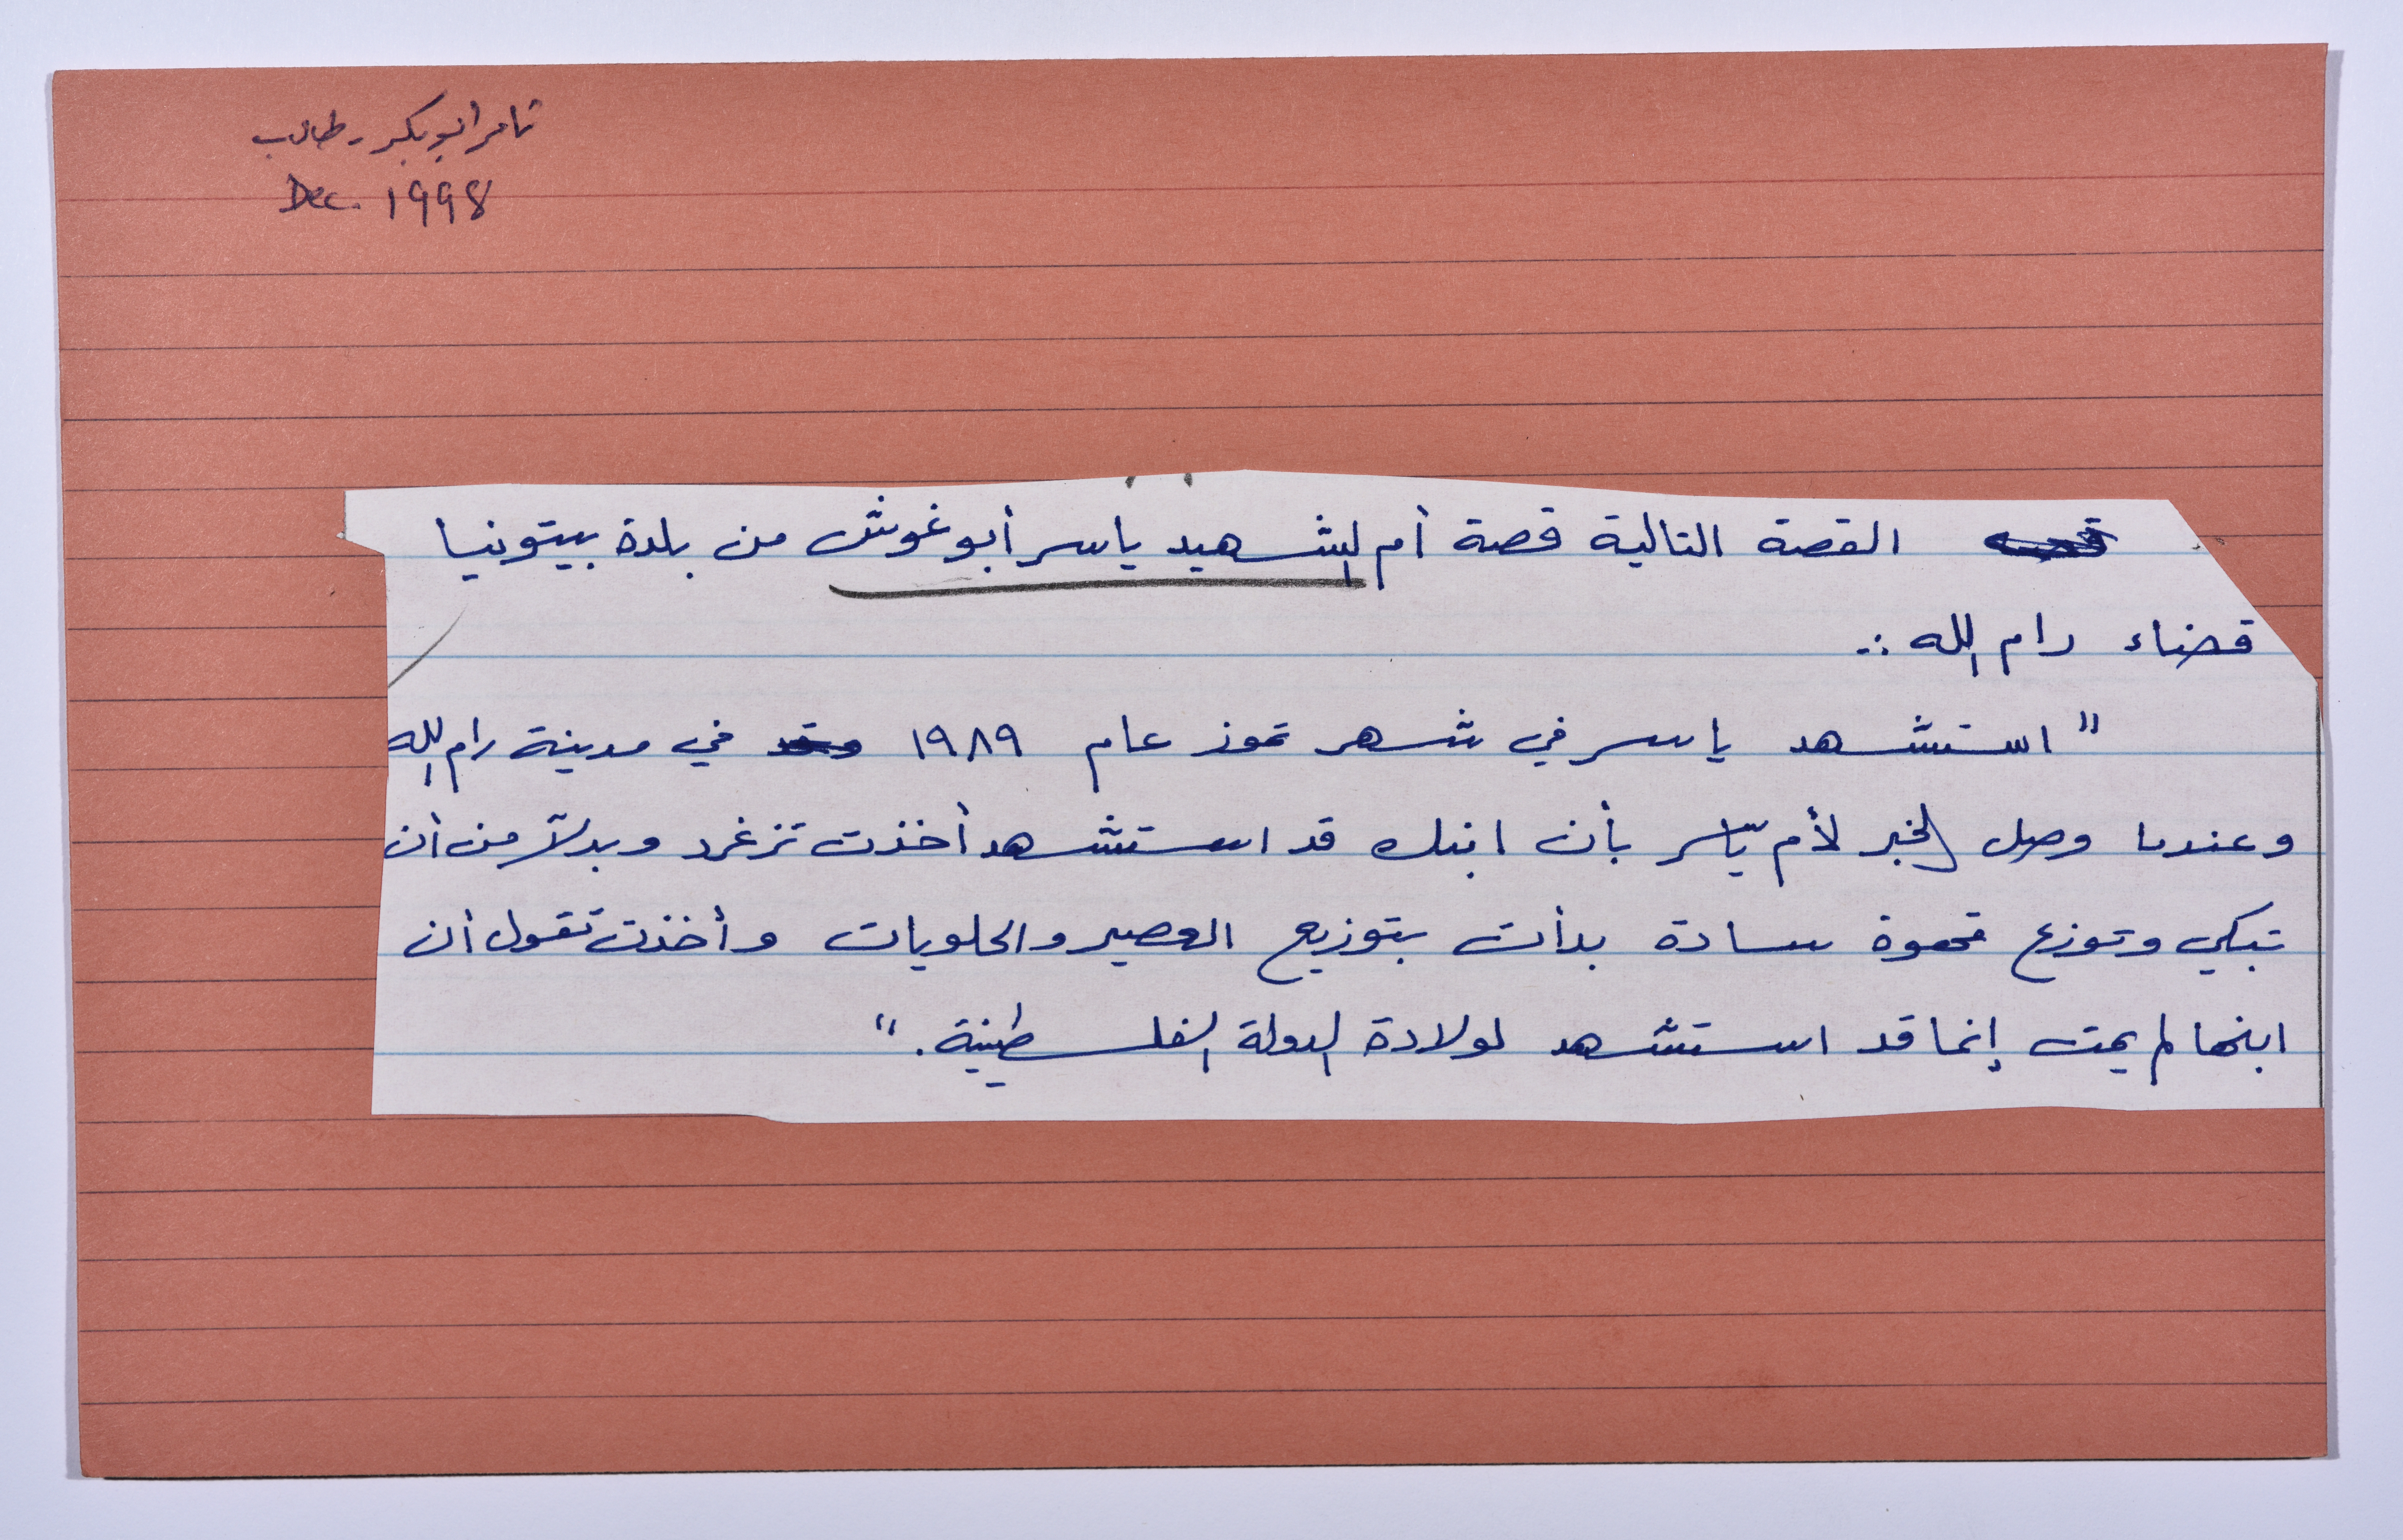 تامر ابو بكر - طالب
Dec. 1998
القصة التالية قصة أم الشهيد ياسر أبو غوش من بلدة بيتونيا
قضاء رام الله :-
" استشهد ياسر في شهر تموز عام ١٩٨٩ في مدينة رام الله
وعندما وصل الخبر لأم ياسر بأن ابنك قد استشهد أخذت تزغرد وبدلاً من أن
تبكي وتوزع قهوة سادة بدأت بتوزيع العصير والحلويات وأخذت تقول أن
ابنها لم يمت إنما قد استشهد لولادة الدولة الفلسطينية . "